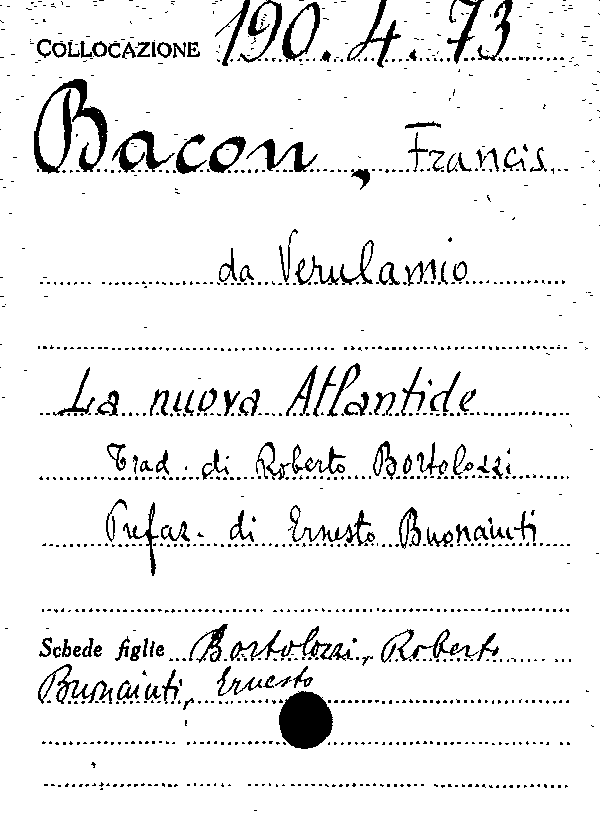 COLLOCAZIONE 190. 4. 73
Bacon, Francis
da Verulamio
La nuova Atlantide
Trad. di Roberto Bortolozzi
Prefaz. di Ernesto Buonaiuti
Schede figlie Bortolozzi, Roberto
Buonaiuti, Ernesto